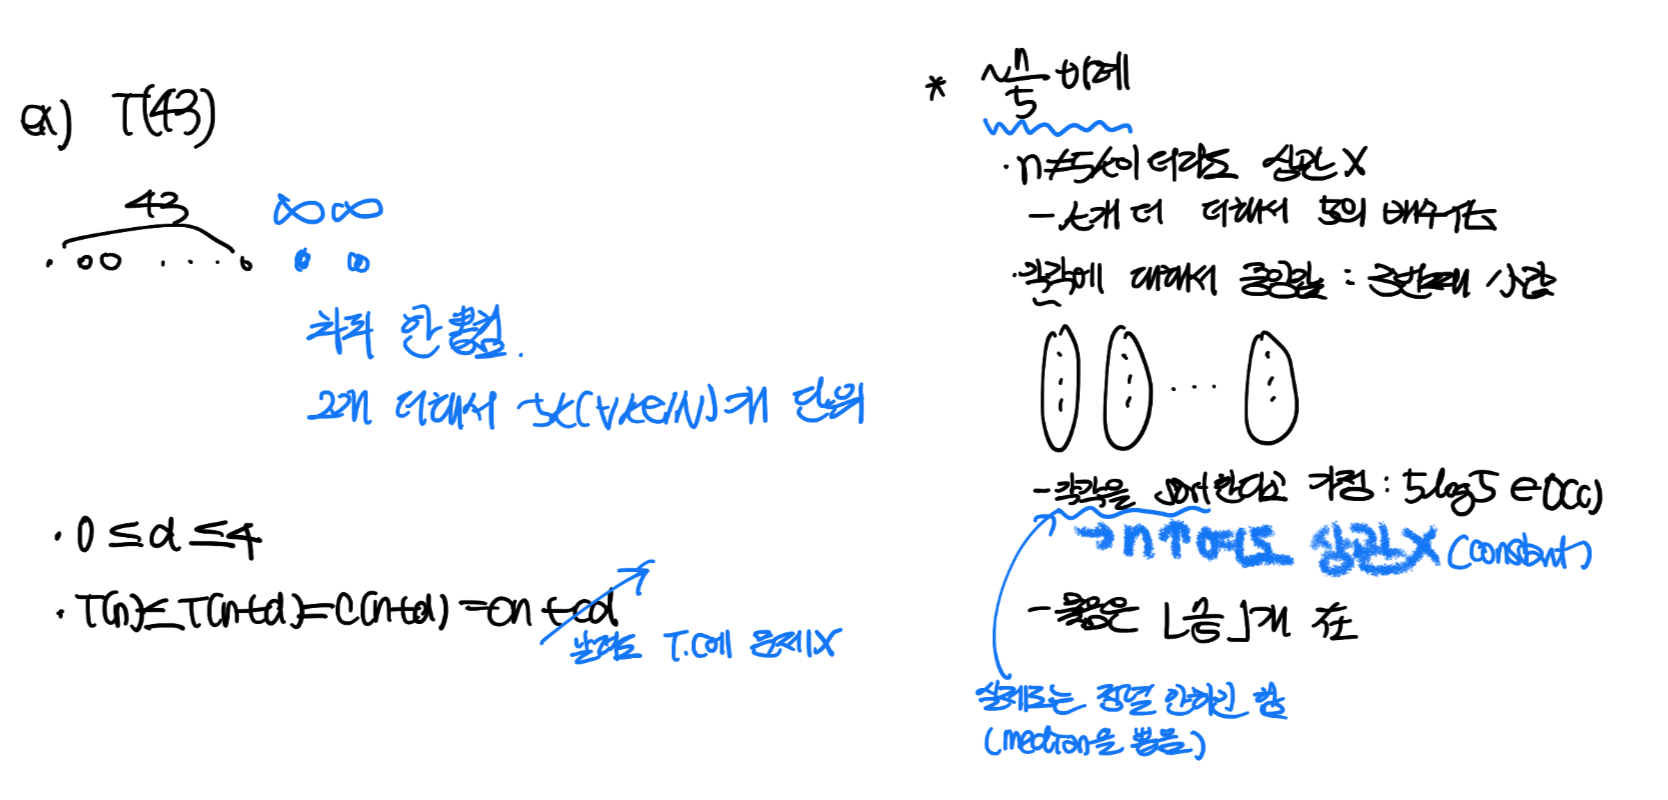 ex) T(43)
43 ∞ ∞
차피 안 뽑힘.
2개 더해서 5k(∀k∈ℕ)개 단위
· 0 ≤ d ≤ 4
· T(n) ≤ T(n+d) = C(n+d) = cn + cd
날려도 T.C에 문제X
* ~n/5 비례
· n≠5k이더라도 상관 X
- k개 더 더해서 5의 배수가능
· 각각에 대해서 중앙값 : 3번째 시간
...
- 각각을 sort한다고 가정 : 5log5 ∈ O(c)
→ n↑여도 상관X (constant)
- 묶음은 ⌊n/5⌋개 存
실제로는 정렬 안하긴 함
(median을 뽑음)